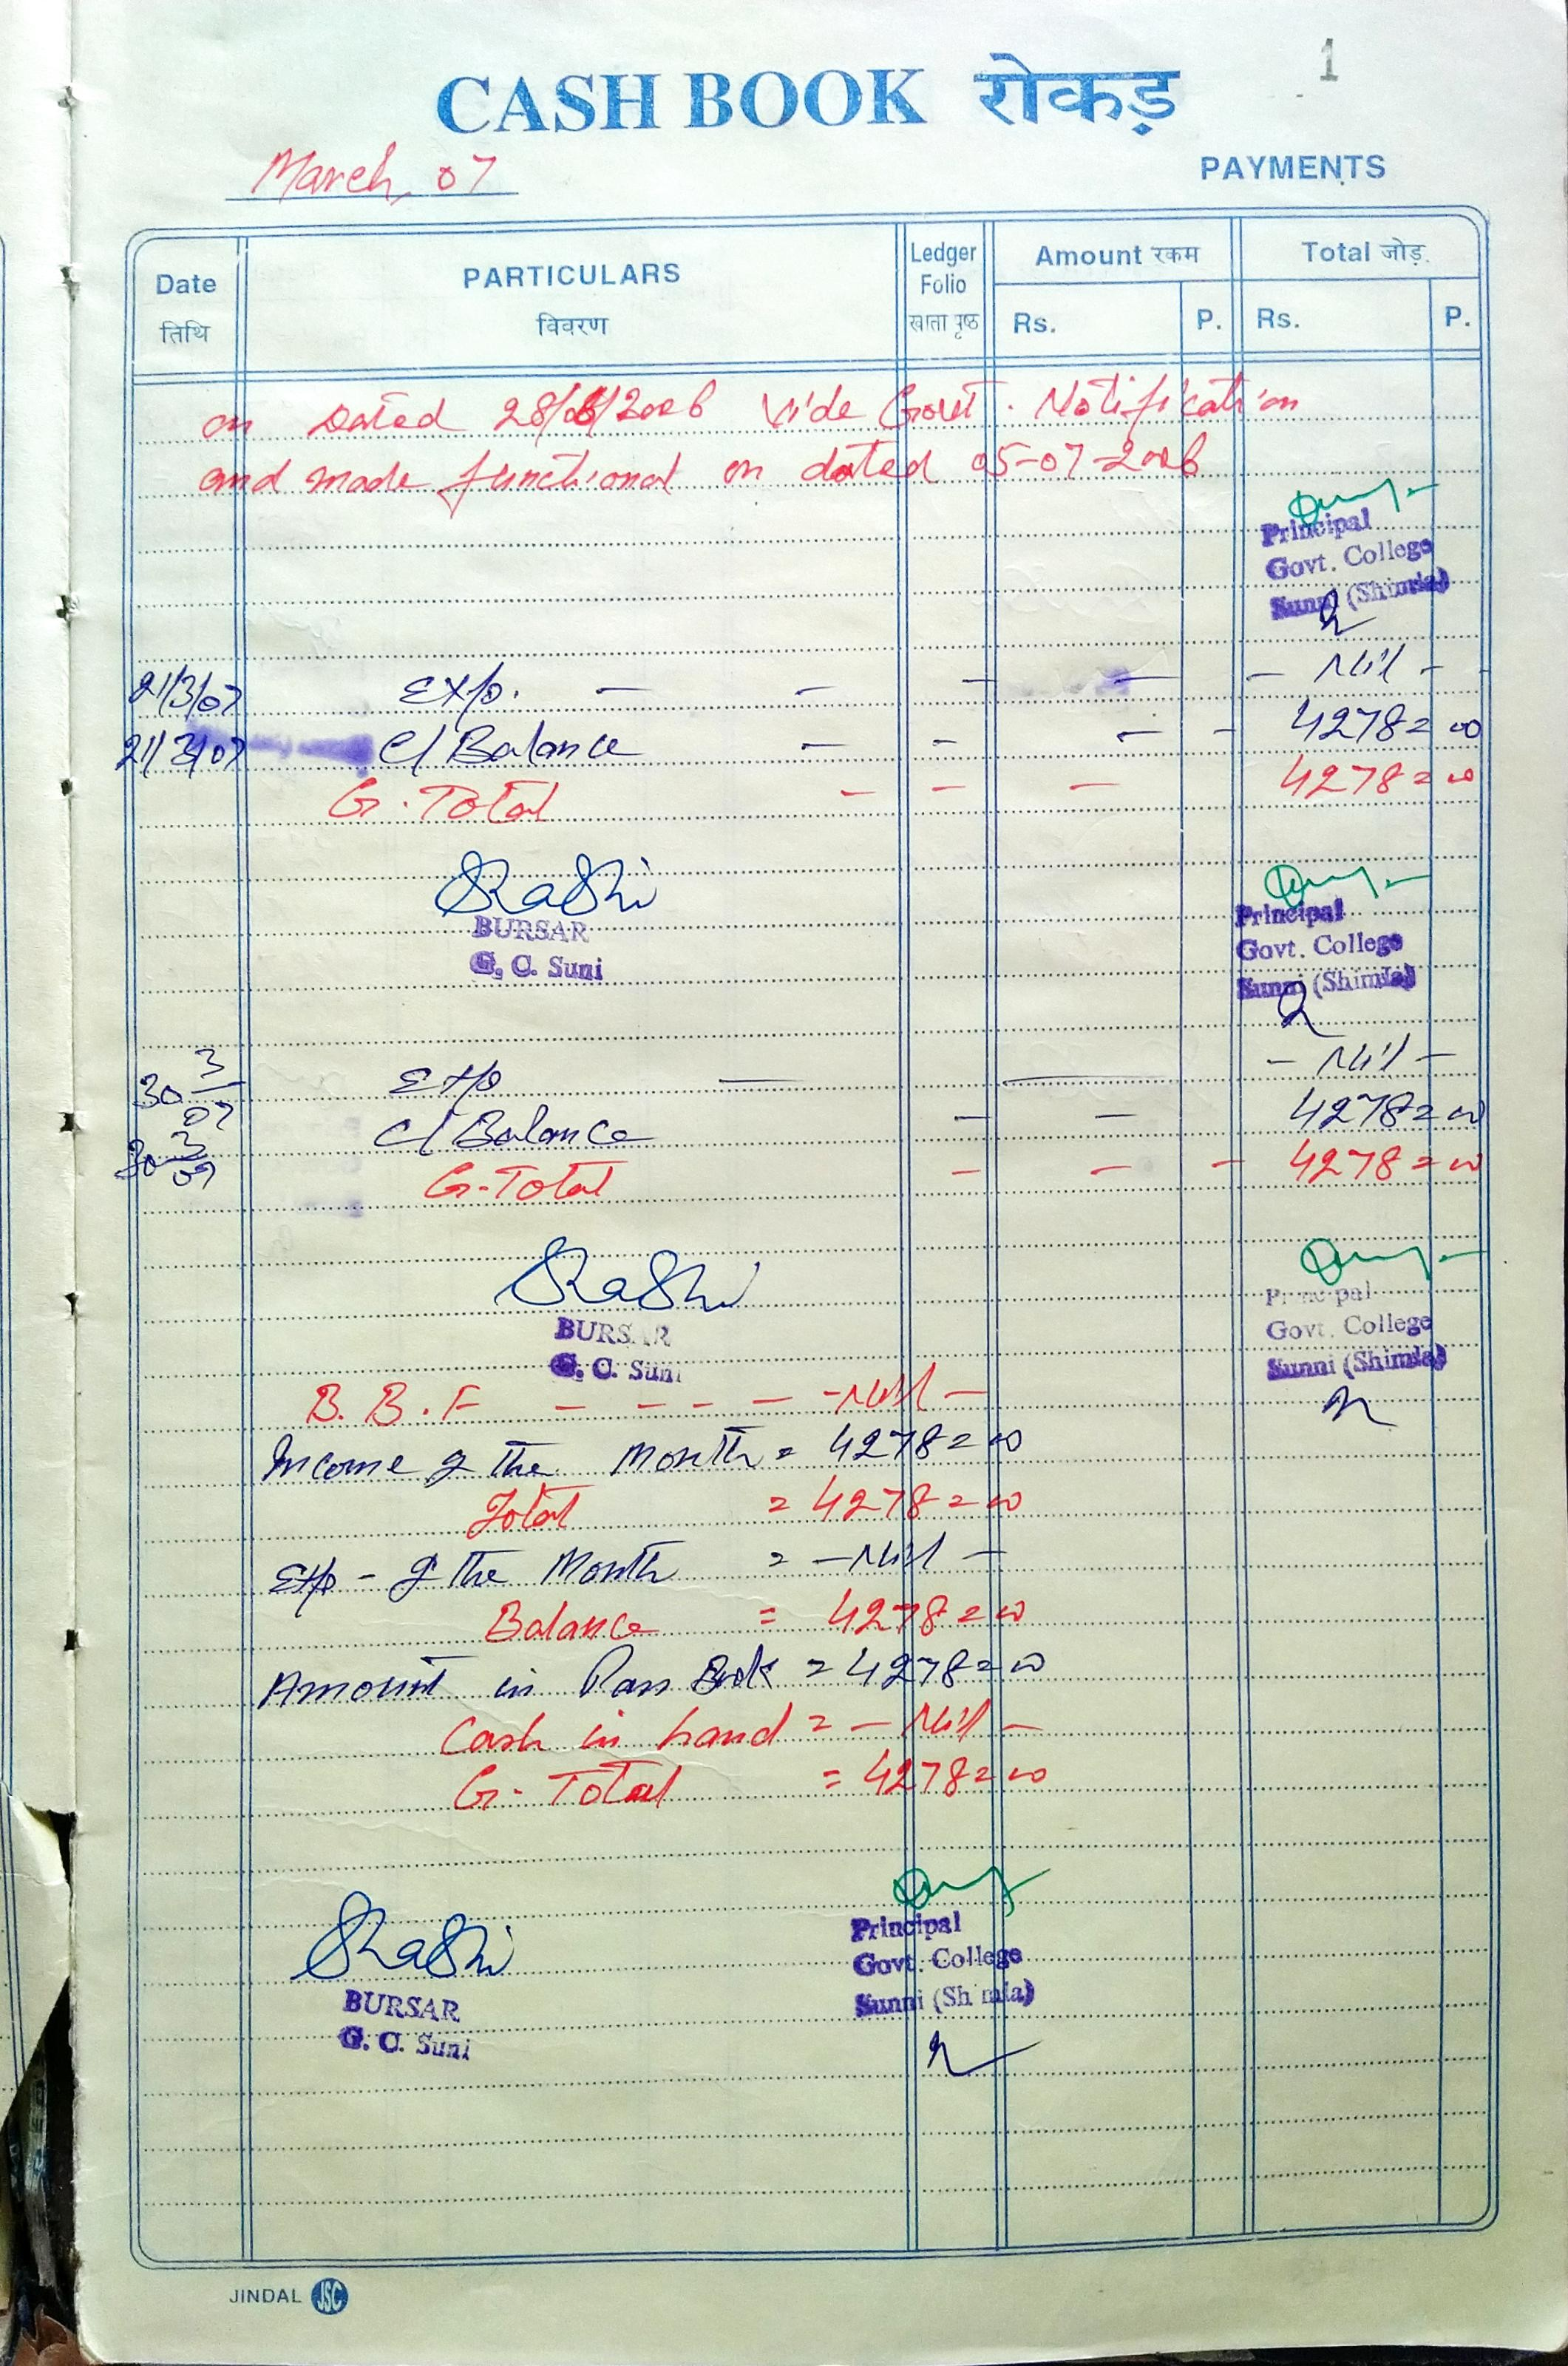 1
CASH BOOK रोकड़
March, 07
PAYMENTS
Date PARTICULARS Ledger Folio Amount रकम Total जोड़
तिथि विवरण खाता पृष्ठ Rs. P. Rs. P.
on Dated 28/06/2006 Vide Govt. Notification
and made functional on dated 05-07-2006
Principal
Govt. College
Sunni (Shimla)
21/3/07 Exp. — — — — — Nil —
21/3/07 C/Balance — — — — 4278=00
G. Total — — — 4278=00
Shashi
BURSAR
G. C. Suni
Principal
Govt. College
Sunni (Shimla)
30 3/07 Exp — — — Nil —
30 3/07 C/Balance — — 4278=00
G-Total — — — 4278=00
Shashi
BURSAR
G. C. Suni
Principal
Govt. College
Sunni (Shimla)
B. B. F — — — — -Nil —
Income of the Month = 4278=00
Total = 4278=00
Exp - of the Month = —Nil —
Balance = 4278=00
Amount in Pass Book = 4278=00
Cash in hand = — Nil —
G- Total = 4278=00
Shashi
BURSAR
G. C. Suni
Principal
Govt. College
Sunni (Shimla)
JINDAL JSC